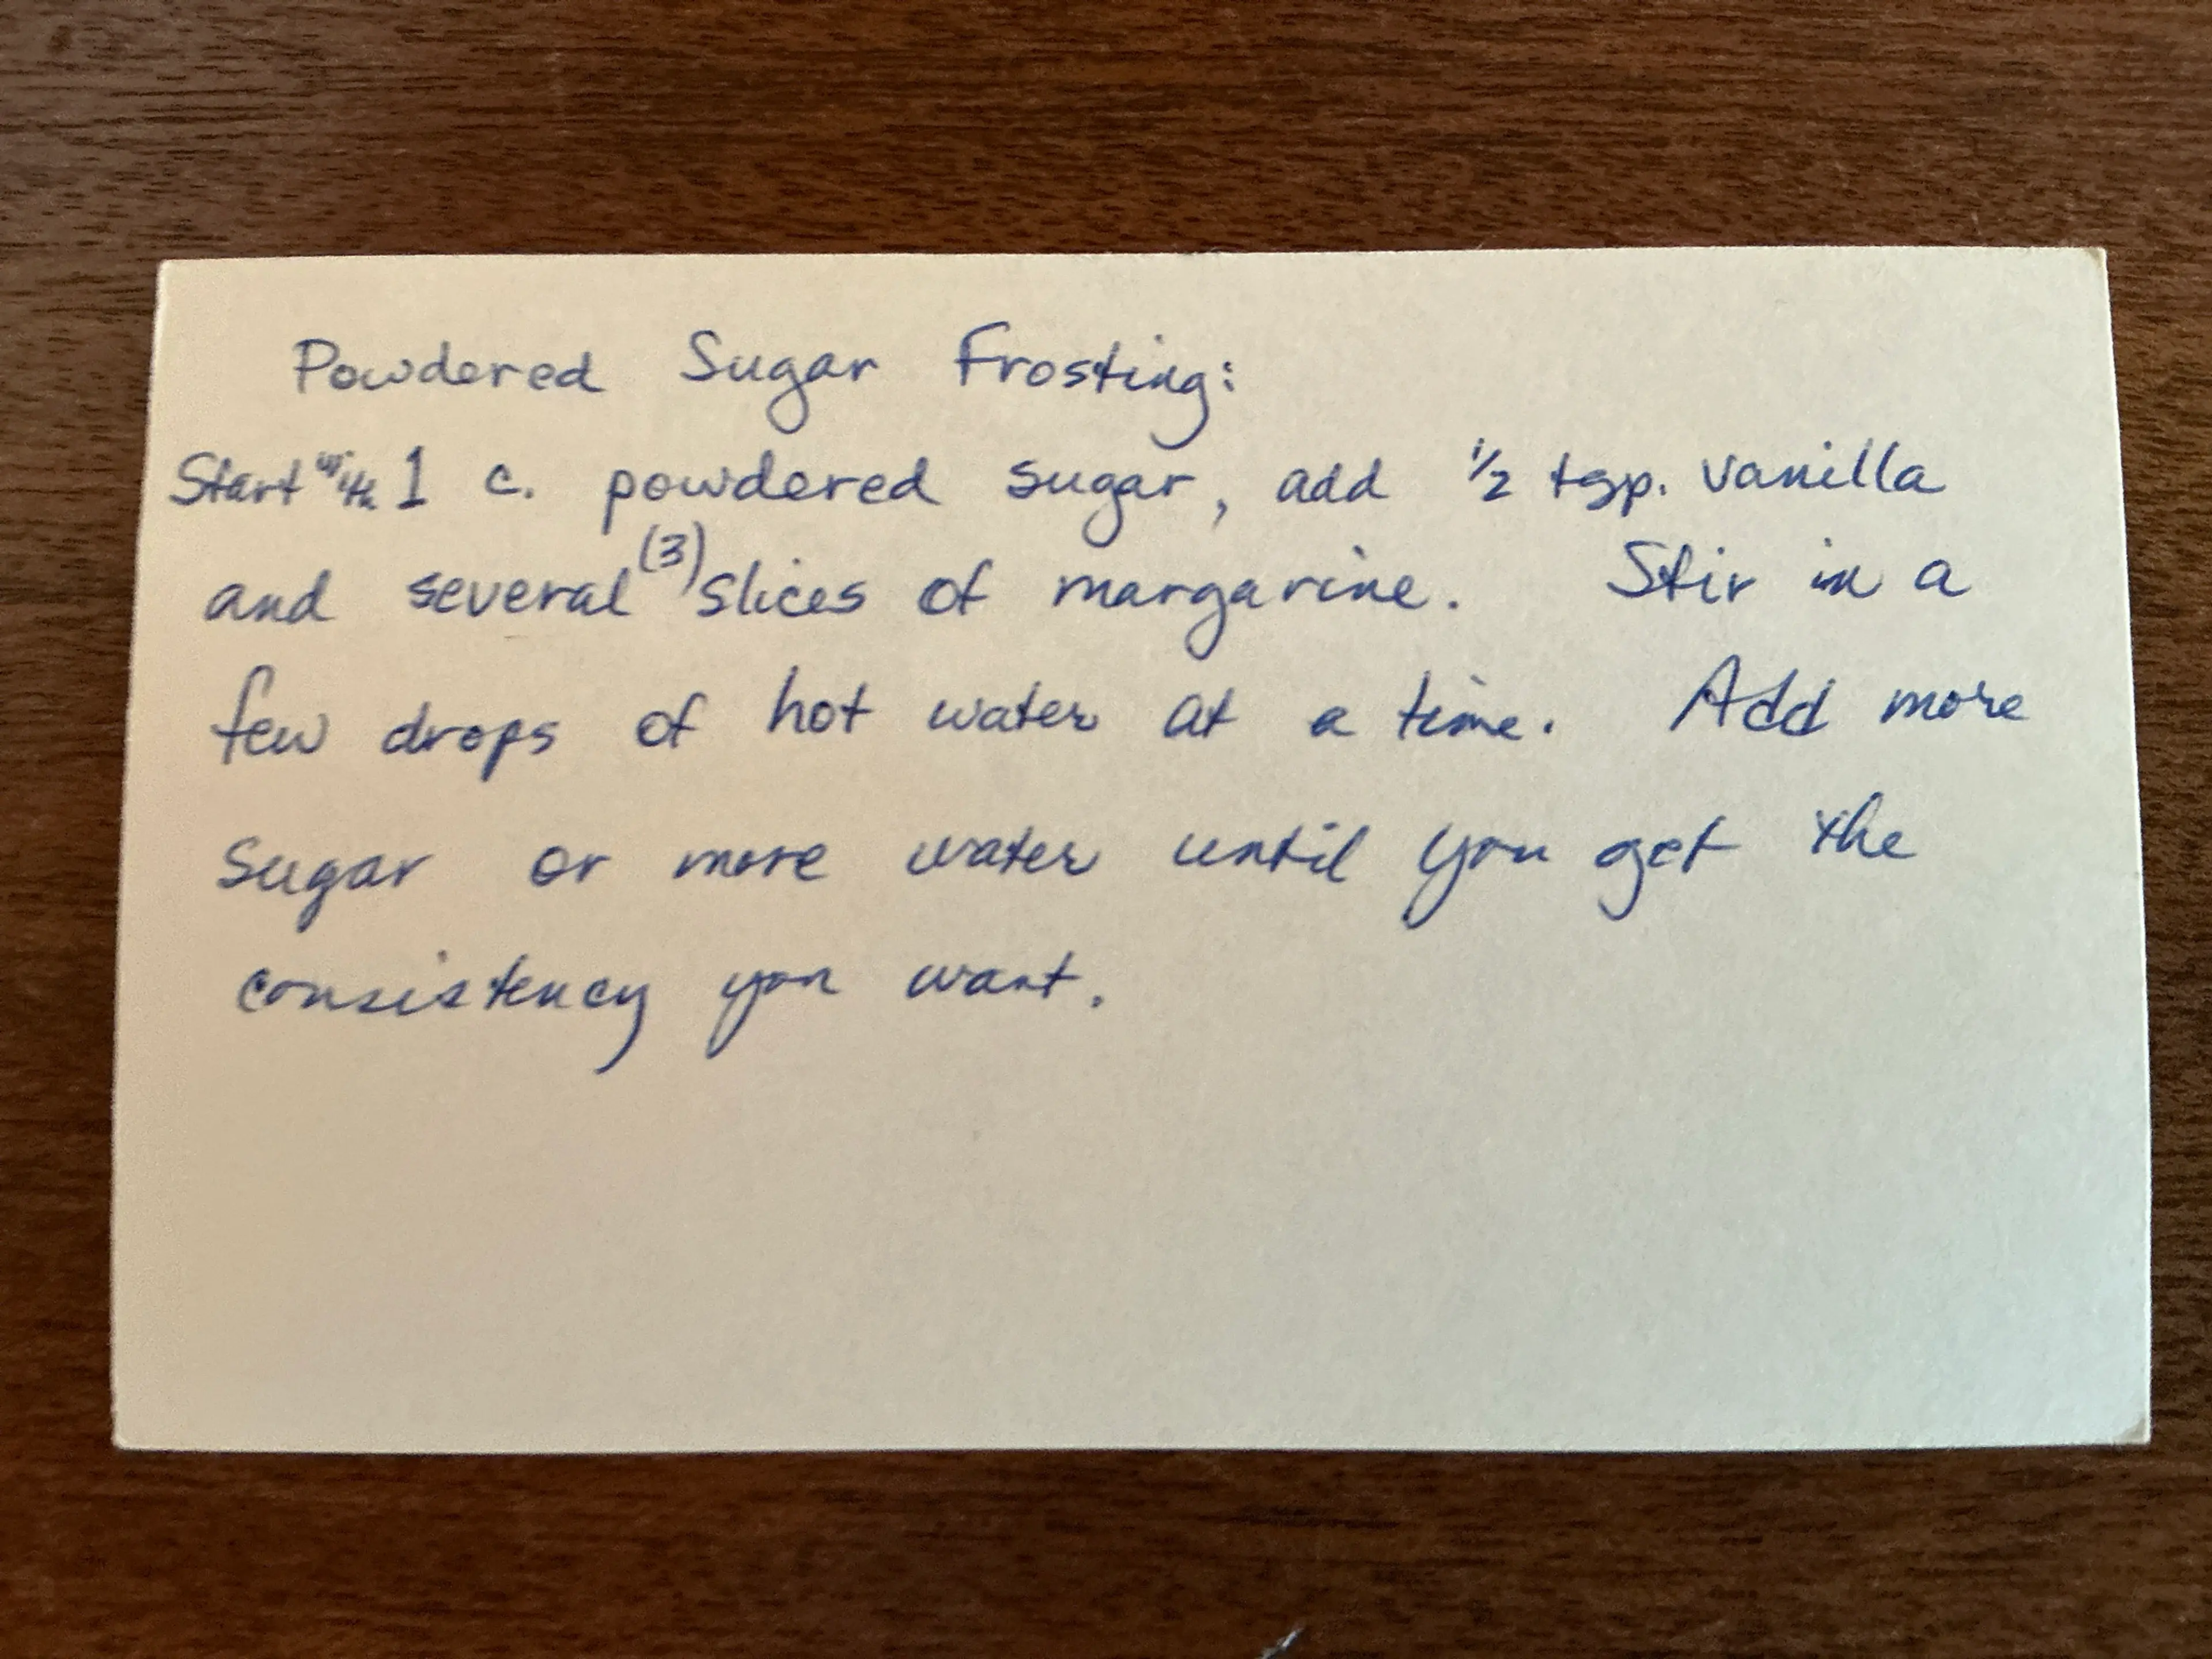 Powdered Sugar Frosting:
Start with 1 c. powdered sugar, add 1/2 tsp. vanilla
and several (3) slices of margarine. Stir in a
few drops of hot water at a time. Add more
sugar or more water until you get the
consistency you want.